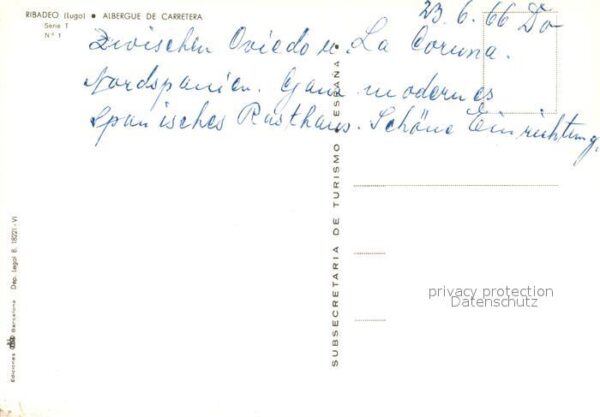 RIBADEO (Lugo) • ALBERGUE DE CARRETERA
Serie T
N.º 1
23.6.66 Do
Zwischen Oviedo u. La Coruna.
Nordspanien. Ganz modernes
Spanisches Rasthaus. Schöne Einrichtung.
SUBSECRETARIA DE TURISMO - ESPAÑA
Ediciones Barcelona Dep. Legal B. 18221-VI
privacy protection
Datenschutz